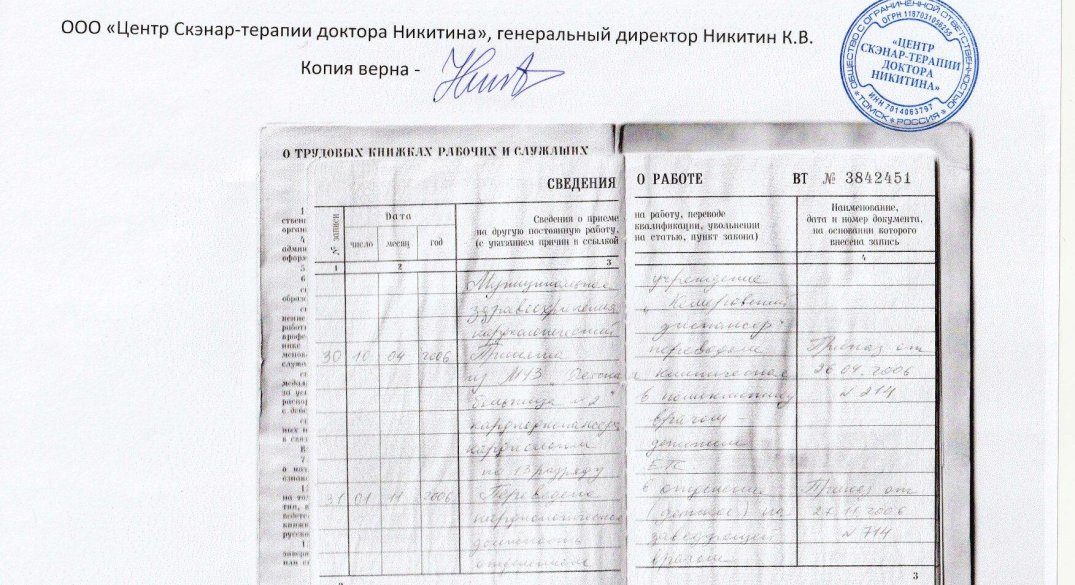 ООО «Центр Скэнар-терапии доктора Никитина», генеральный директор Никитин К.В.
Копия верна -
ОБЩЕСТВО С ОГРАНИЧЕННОЙ ОТВЕТСТВЕННОСТЬЮ
ОГРН 1187031056255
«ЦЕНТР
СКЭНАР-ТЕРАПИИ
ДОКТОРА
НИКИТИНА»
ИНН 7014063797
* ТОМСК * РОССИЯ *
О ТРУДОВЫХ КНИЖКАХ РАБОЧИХ И СЛУЖАЩИХ
СВЕДЕНИЯ О РАБОТЕ ВТ № 3842451
№ записи
Дата
число месяц год
Сведения о приеме на работу, переводе
на другую постоянную работу, квалификации, увольнении
(с указанием причин и ссылкой на статью, пункт закона)
Наименование,
дата и номер документа,
на основании которого
внесена запись
1 2 3 4
Муниципальное учреждение
здравоохранения „Кемеровский
кардиологический диспансер“
30 10 04 2006 Принята переводом Приказ от
из МУЗ клиническая 26.04.2006
больница №2“ в поликлинику № 214
врачом
кардиологом
по 13 разряду ЕТС
31 01 11 2006 Переведена в отделение Приказ от
кардиологическое 27.11.2006
должность заведующей № 714
отделением врачом
3